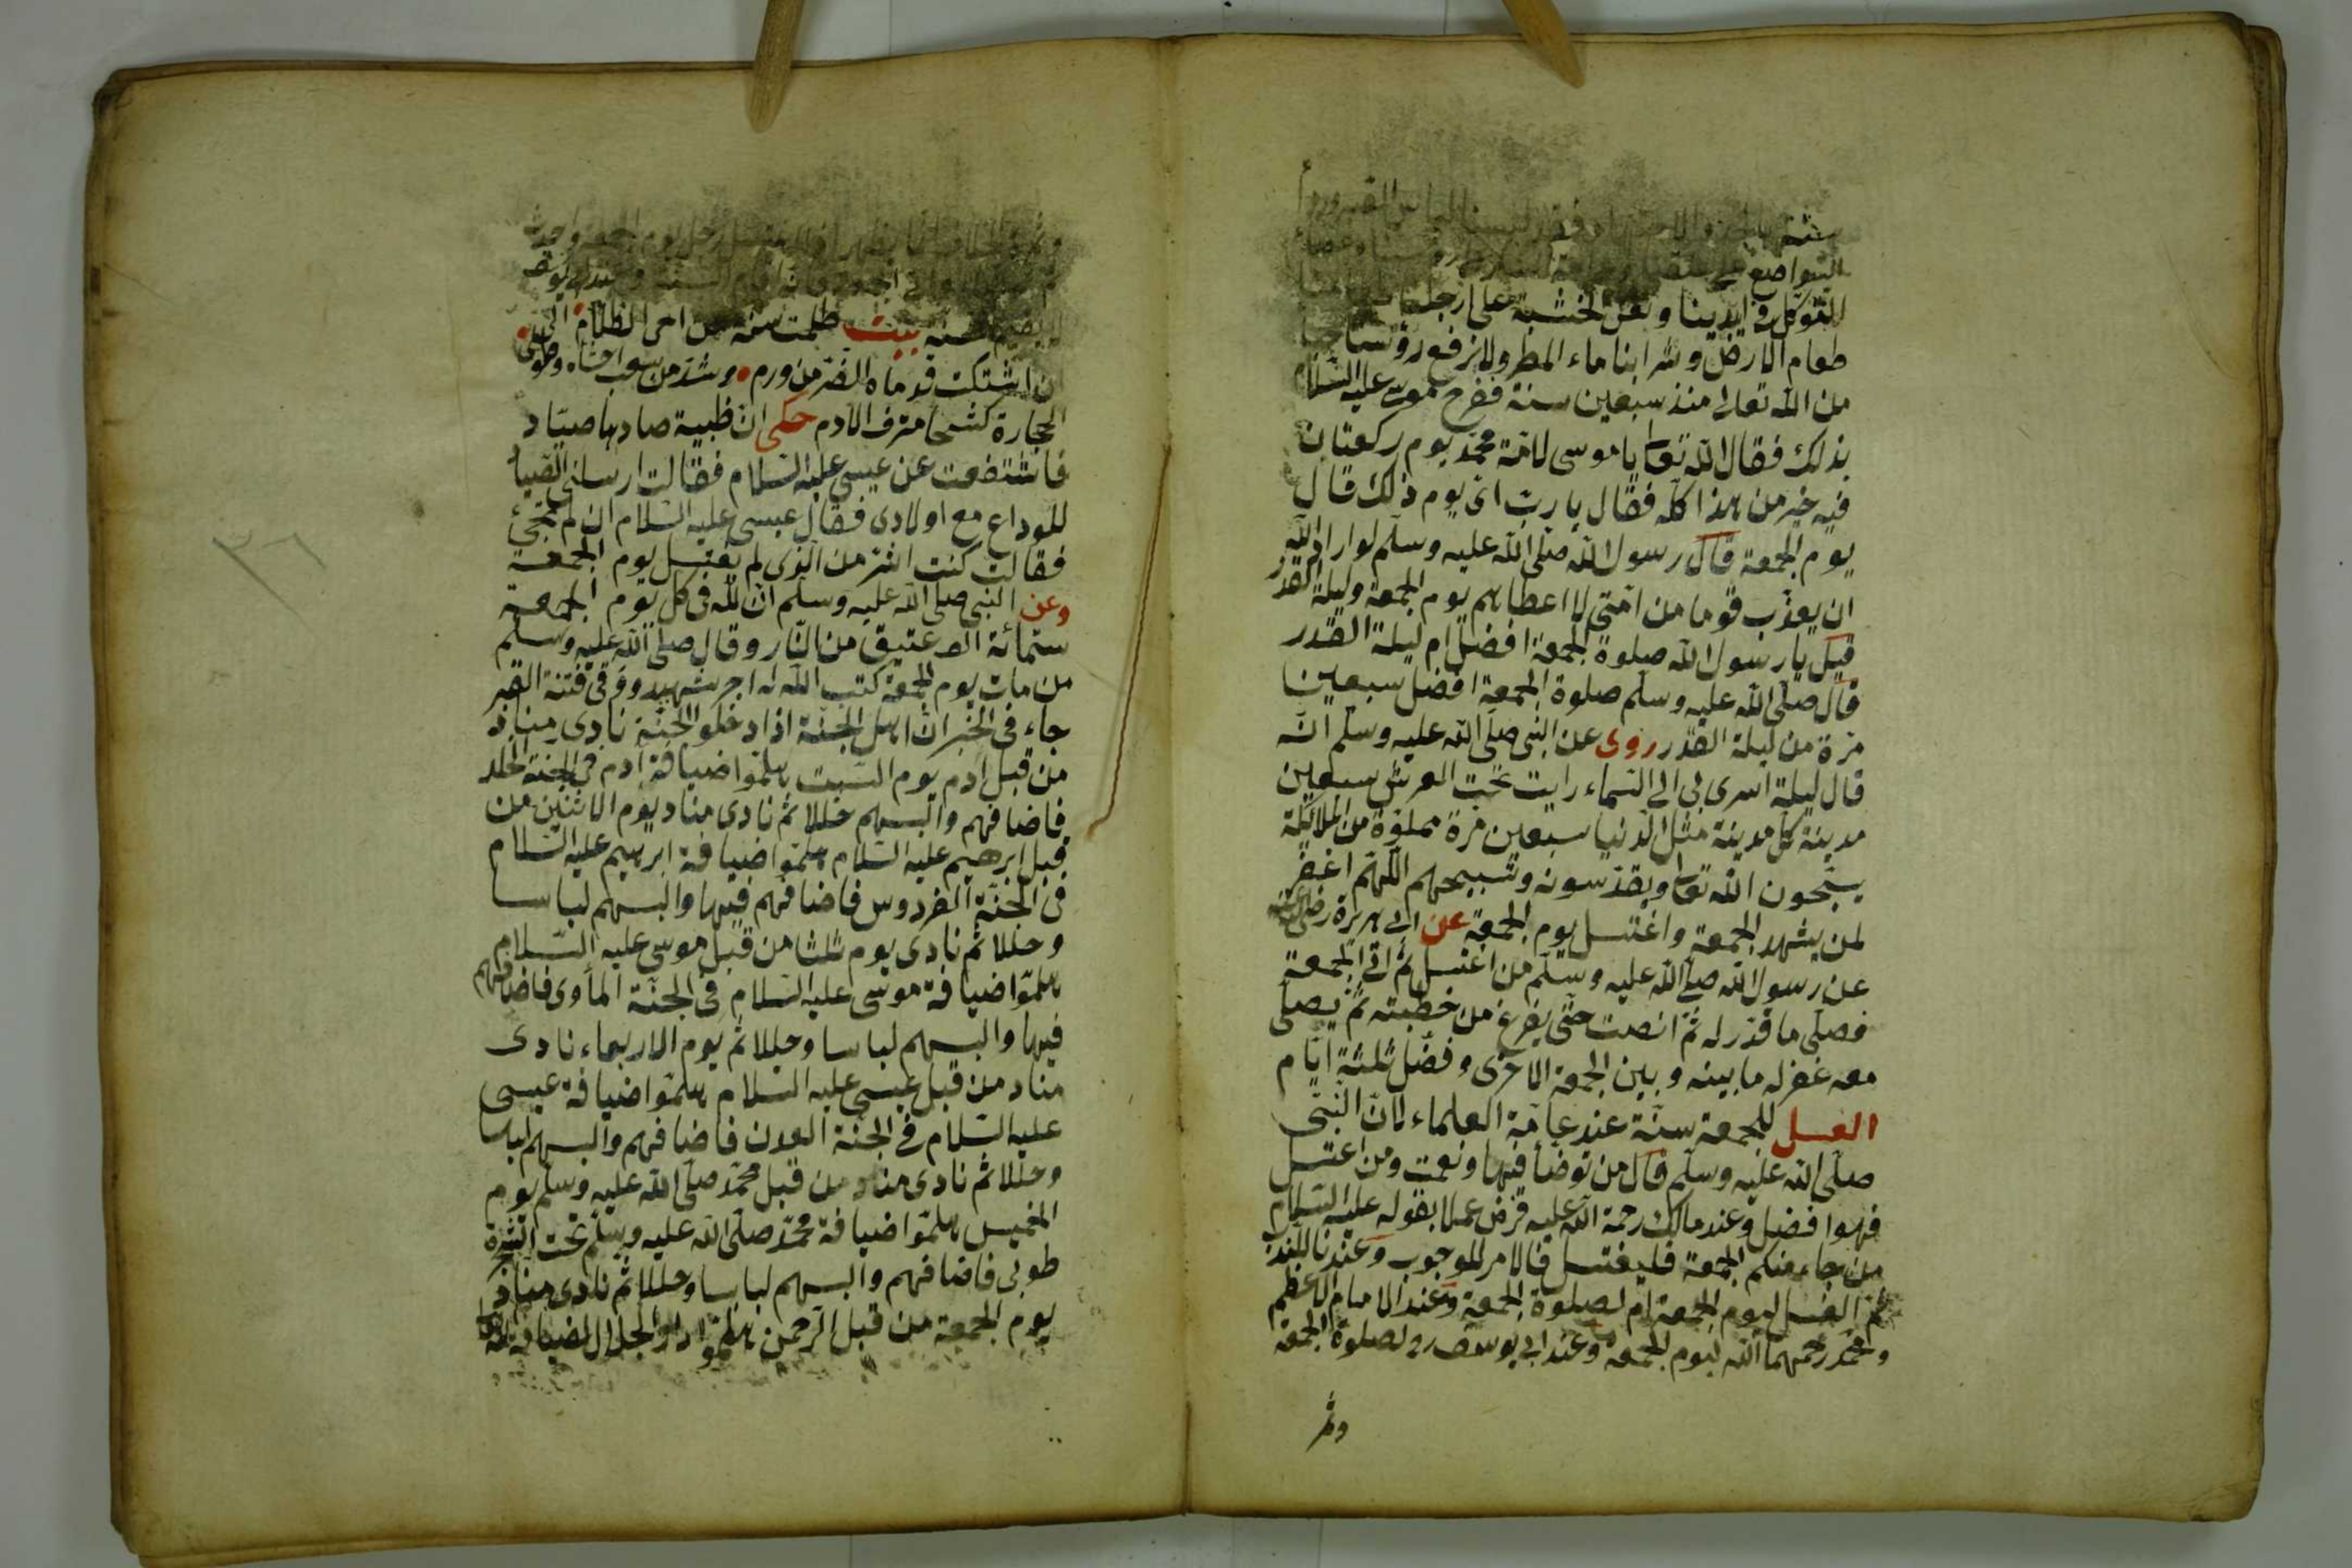 سنة
التواضع
للتوكل في ايدينا ونعل الخشبة على ارجلنا
طعام الارض وشرابنا ماء المطر ولا نرفع رؤسنا حيا
من الله تعالى منذ سبعين سنة ففرح موسى عليه السلام
بذلك فقال الله تعا يا موسى لامة محمد يوم ركعتان
فيه خير من هذا كله فقال يا رب اى يوم ذلك قال
يوم الجمعة قال رسول الله صلى الله عليه وسلم لو اراد الله
ان يعذب قوما من امتى لا اعطاهم يوم الجمعة وليلة القدر
قيل يا رسول الله صلوة الجمعة افضل ام ليلة القدر
قال صلى الله عليه وسلم صلوة الجمعة افضل سبعين
مرة من ليلة القدر روى عن النبى صلى الله عليه وسلم انه
قال ليلة اسرى بى الى السماء رايت تحت العرش سبعين
مدينة كل مدينة مثل الدنيا سبعين مرة مملوة من الملائكة
يسبحون الله تعا ويقدسونه وتسبيحهم اللهم اغفر
لمن يشهد الجمعة واغتسل يوم الجمعة عن ابى هريرة رضى الله عنه
عن رسول الله صلى الله عليه وسلم من اغتسل ثم اتى الجمعة
فصلى ما قدر له ثم انصت حتى يفرغ من خطبته ثم يصلى
معه غفر له ما بينه وبين الجمعة الاخرى وفضل ثلثة ايام
الغسل للجمعة سنة عند عامة العلماء لان النبى
صلى الله عليه وسلم قال من توضأ فبها ونعمت ومن اغتسل
فهوا فضل وعند مالك رحمة الله عليه فرض عملا بقوله عليه السلام
من جاء منكم الجمعة فليغتسل فالامر للوجوب وعندنا للندب
ثم الغسل ليوم الجمعة ام لصلوة الجمعة وعند الامام الاعظم
ومحمد رحمهما الله ليوم الجمعة وعند ابى يوسف رح لصلوة الجمعة
وثمر
وثمرة الخلاف انما يظهر
بيت ظلمت سنة من احى الظلام الى
ان اشتكت قدماه الضر من ورم وشد من سغب احشاه وطوى
الحجارة كشحا مترف الادم حكى ان ظبية صادها صياد
فاشتفعت عن عيسى عليه السلام فقالت ارسلنى الصياد
للوداع مع اولادى فقال عيسى عليه السلام ان لم تجئ
فقالت كنت اشر من الذى لم يغتسل يوم الجمعة
وعن النبى صلى الله عليه وسلم ان لله فى كل يوم الجمعة
ستمائة الف عتيق من النار وقال صلى الله عليه وسلم
من مات يوم الجمعة كتب الله له اجر شهيد ووقى فتنة القبر
جاء فى الخبر ان اهل الجنة اذا دخلو الجنة نادى مناد
من قبل آدم يوم السبت هلموا ضيافة آدم فى الجنة الخلد
فاضافهم والبسهم حللا ثم نادى مناد يوم الاثنين من
قبل ابرهيم عليه السلام هلموا ضيافة ابرهيم عليه السلام
فى الجنة الفردوس فاضافهم فيها والبسهم لباسا
وحللا ثم نادى يوم ثلثا من قبل موسى عليه السلام
هلموا ضيافة موسى عليه السلام فى الجنة المأوى فاضافهم
فيها والبسهم لباسا وحللا ثم يوم الاربعاء نادى
مناد من قبل عيسى عليه السلام هلموا ضيافة عيسى
عليه السلام فى الجنة العدن فاضافهم والبسهم لباسا
وحللا ثم نادى مناد من قبل محمد صلى الله عليه وسلم يوم
الخميس هلموا ضيافة محمد صلى الله عليه وسلم تحت الشجرة
طوبى فاضافهم والبسهم لباسا وحللا ثم نادى مناد
يوم الجمعة من قبل الرحمن هلموا دار الجلال لضيافة الله
٣٦